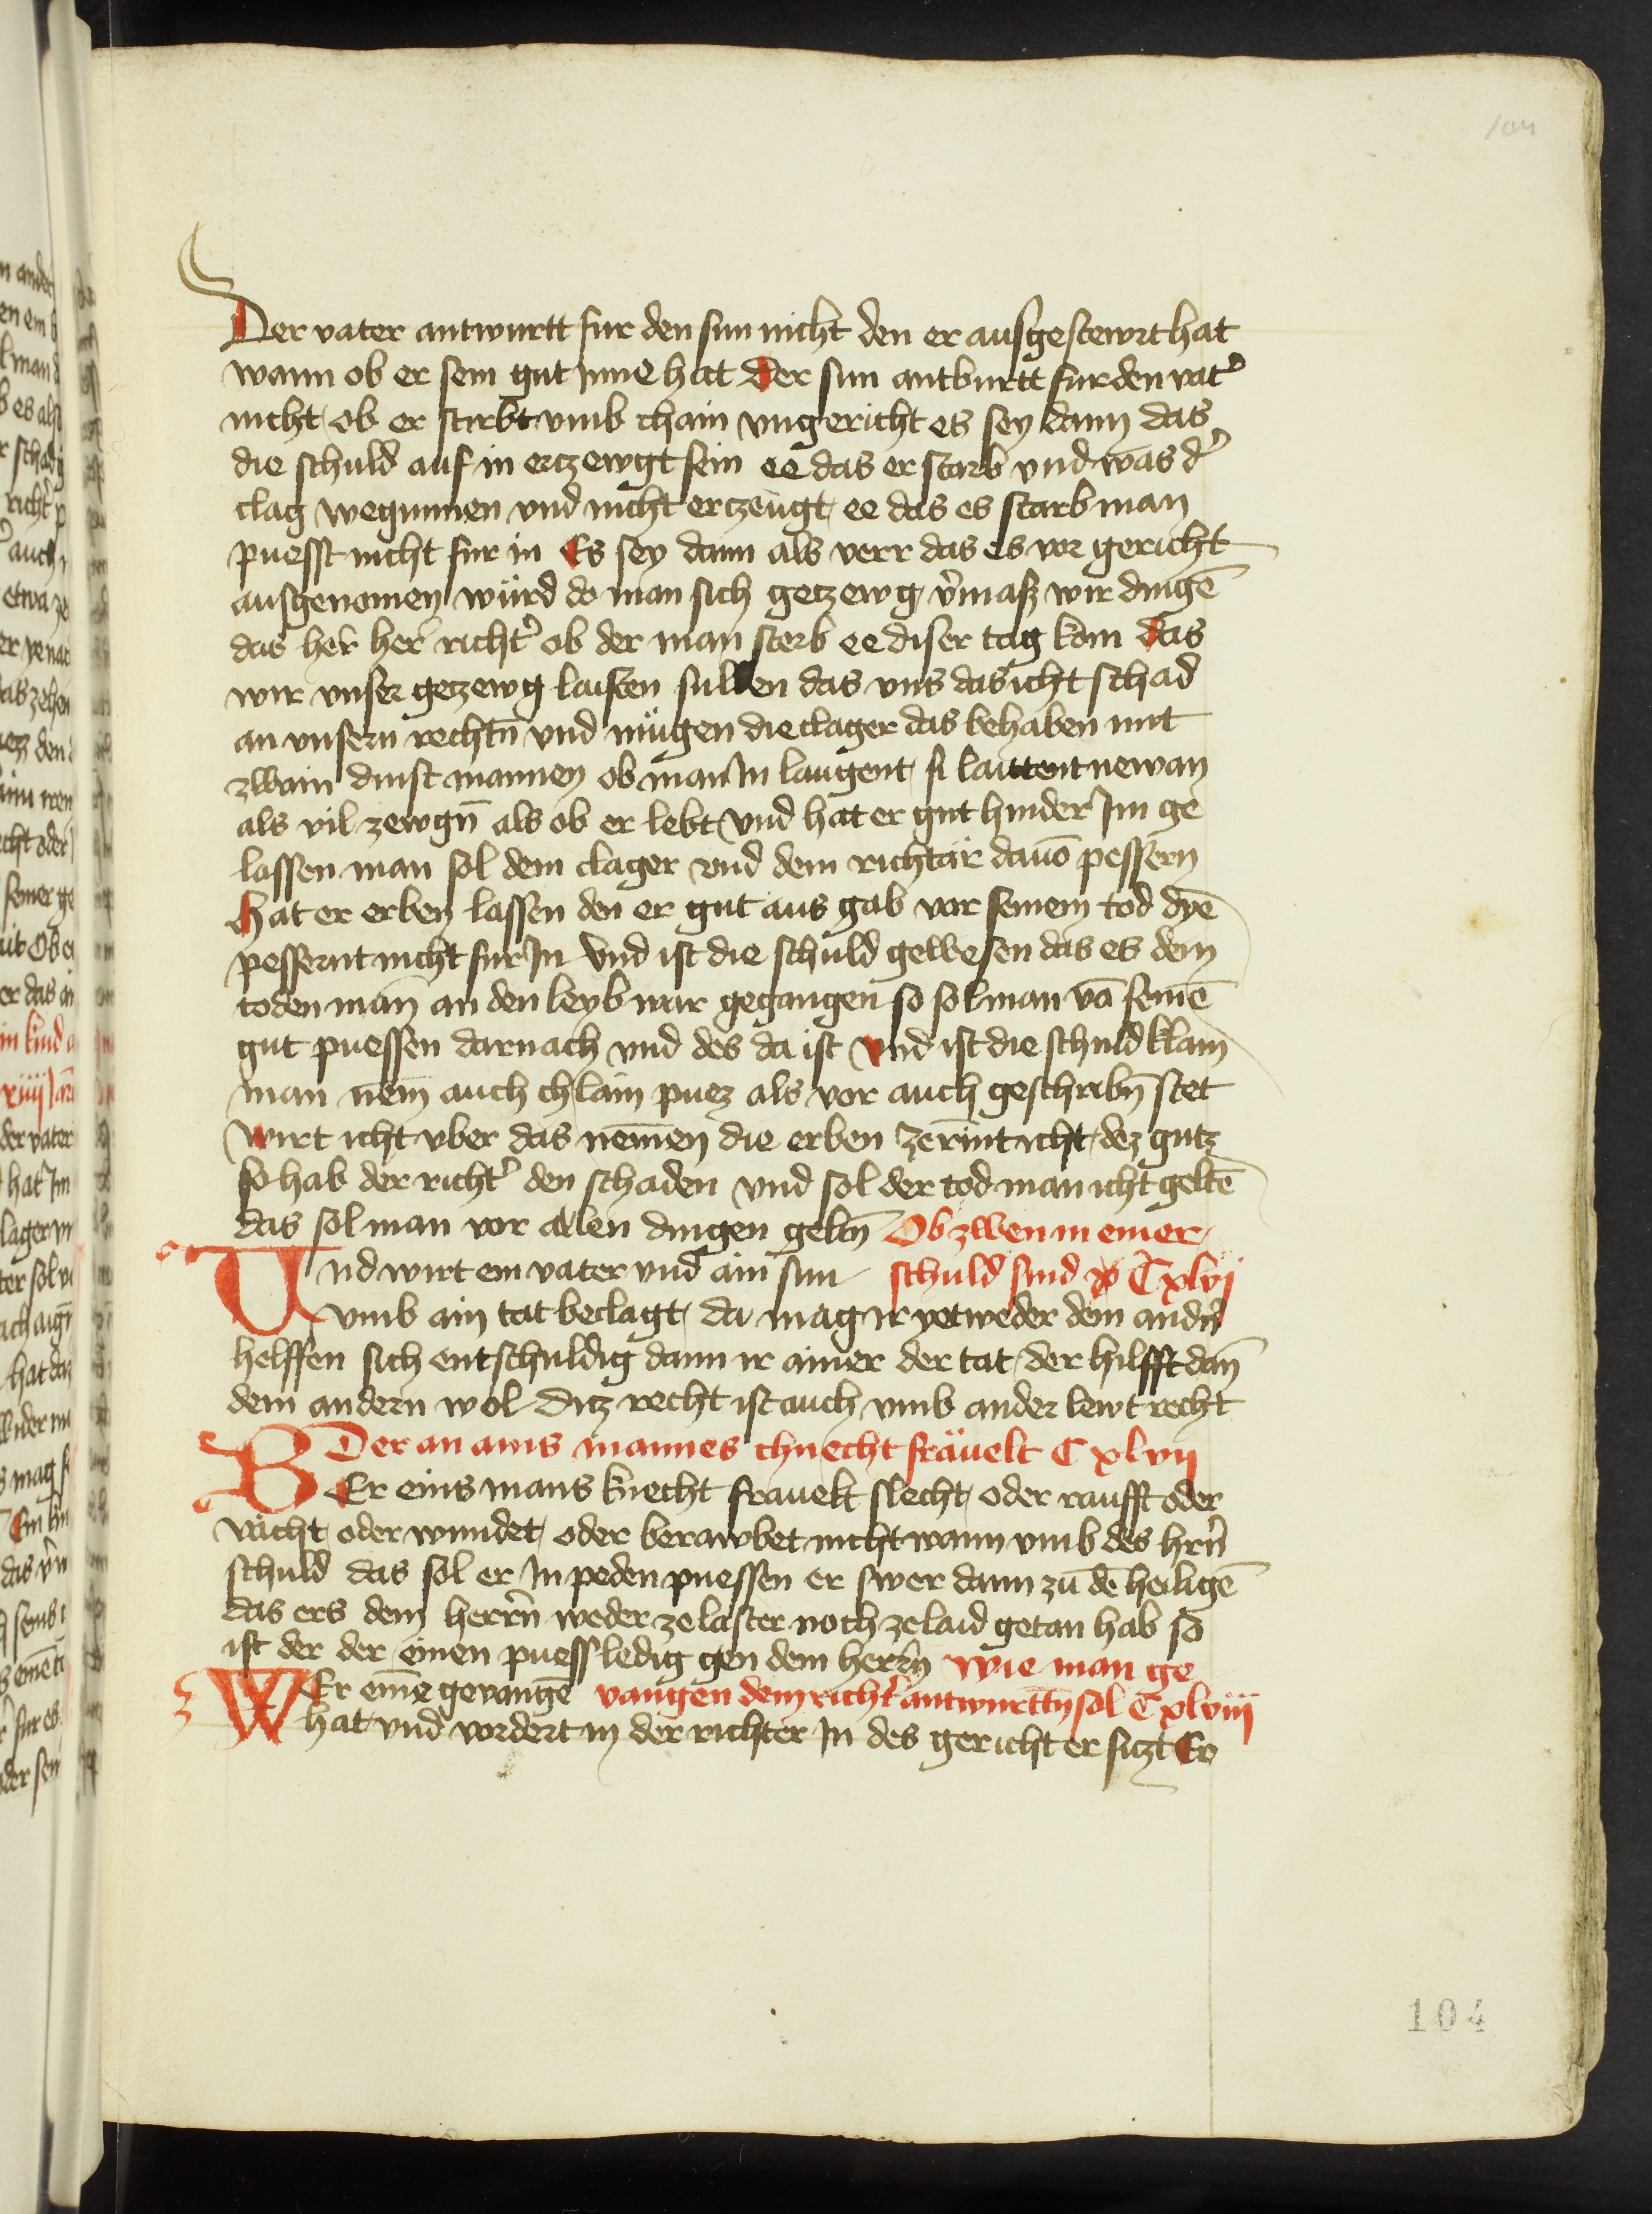 104
Der vater antwurtt fur den sun nicht den er ausgestewrt hat
wann ob er sein gut Inne hat der sun antburtt fur den vat͛
nicht ob er stirbt vmb chain vngericht es sey dann das
die schuld auf in ertzewgt sein ee das er starb vnd was d͛
clag wegunnen vnd nicht ertzeugt ee das es starb man
puesst nicht fur in Es sey dann als verr das es vor gericht
ausgenomen würd do man sich getzewg v͛maß wir dingē
das her͛ her͛ richt͛ ob der man sterb ee diser tag kom das
wir vnser getzewg laisten sullen das vns das icht schad
an vnsern rechtn̄ vnd mügen die clager das behaben mit
zwain dinst mannen ob man In laugent si laittent newan
als vil zewgn̄ als ob er lebt vnd hat er gut hinder Im ge
lassen man sol dem clager vnd dem richtär dauō pessern
hat er erben lassen den er gut aus gab vor seinem tod dyē
pessernt nicht fur In vnd ist die schuld gewesen das es dem
toden man̄ an den leyb wär gegangen so sol man vā seinē
gut puessen darnach vnd des da ist vnd ist die schuld klain
man nem̄ auch chlain puez als vor auch geschribn̄ stet
wirt icht vber das nem̄en die erben zerin̄t icht dez gutz
so hab der richt͛ den schaden vnd sol der tod man icht geltē
das sol man vor allen dingen geltn̄ Ob zwen in einer
Vnd wirt ein vater vnd ain sun schuld sind Cxlvj
vmb ain tat beclagt da mag ir yetweder dem andn͛
helffen sich entschuldig dann ir ainer der tat der hilfft dan̄
dem andern wol ditz recht ist auch vmb ander lewt recht
Der an ains mannes chnecht fräuelt Cxlvij
BEr eins mans knecht frauelt slecht oder raufft oder
vächt oder wundet oder berawbet nicht wann vmb des hrn͛
schuld das sol er In peden puessen er swer dann zu dē heiligē
das ers dem herrn̄ weder ze laster noch ze laid getan hab so
ist der der einen puess ledig gen dem herrn̄ wie man ge
WEr einē geuangē vangen dem richt͛ antwurttn̄ sol Cxlviij
hat vnd vordert in der richter In des gericht er siczt Er
104